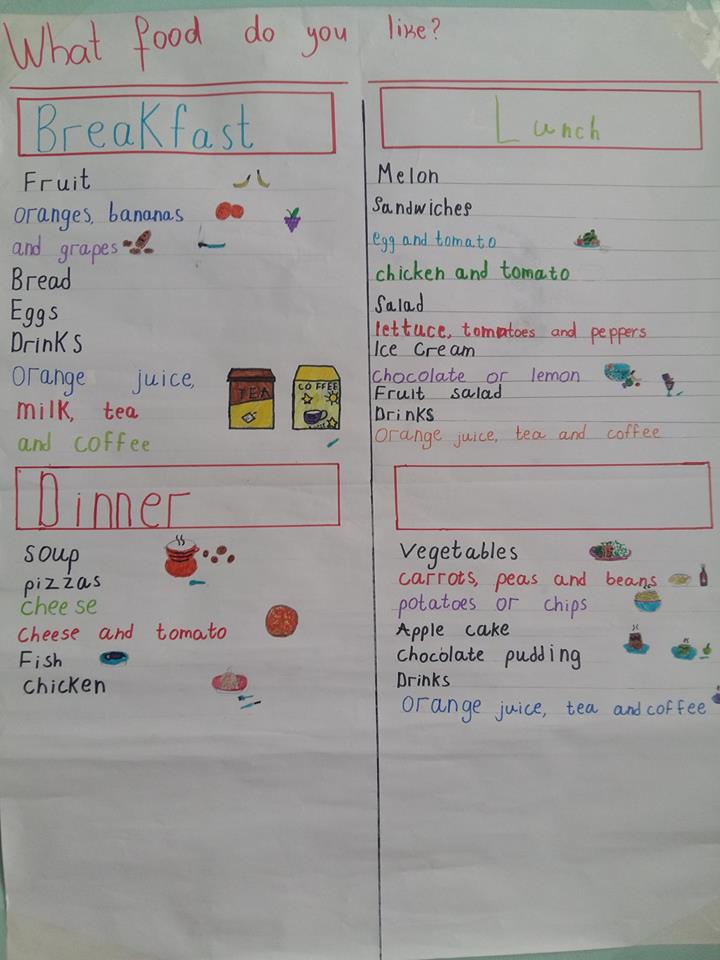 What food do you like?
Breakfast
Fruit
oranges, bananas
and grapes
Bread
Eggs
Drinks
orange juice,
milk, tea
and coffee
TEA
COFFEE
Lunch
Melon
Sandwiches
egg and tomato
chicken and tomato
Salad
lettuce, tomatoes and peppers
Ice Cream
chocolate or lemon
Fruit salad
Drinks
Orange juice, tea and coffee
Dinner
soup
pizzas
cheese
cheese and tomato
Fish
chicken
Vegetables
carrots, peas and beans
potatoes or chips
Apple cake
chocolate pudding
Drinks
orange juice, tea and coffee